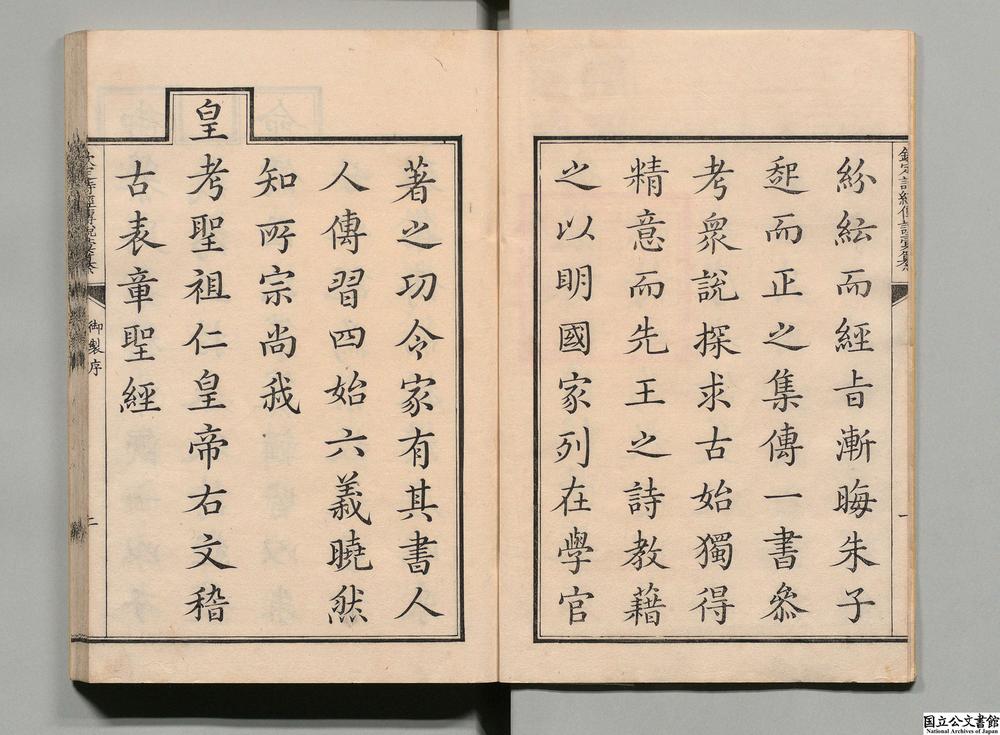 紛紜而經㫖漸晦朱子
起而正之集傳一書叅
考衆說探求古始獨得
精意而先王之詩教藉
之以明國家列在學官
著之功令家有其書人
人傳習四始六義曉然
知所宗尚我
皇考聖祖仁皇帝右文稽
古表章聖經
欽定詩經傳說彙纂
一
欽定詩經傳說彙纂
御製序
二
国立公文書館
National Archives of Japan